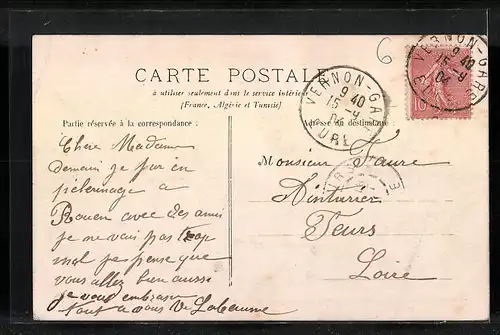 6
CARTE POSTALE
à utiliser seulement dans le service intérieur
(France, Algérie et Tunisie)
VERNON-GARE
9 40
15 -9
04
EURE
VERNON-GA
9 40
15 -9
04
EURE
10
Partie réservée à la correspondance :
Adresse du destinataire
Chere Madame
demain je par en
pelerinage a
Rouen avec des amis
je ne vais pas trop
mal je pense que
vous allez bien aussi
je vous embrasse
tout a vous Vve Labaume
Monsieur Faure
Feurs
Loire